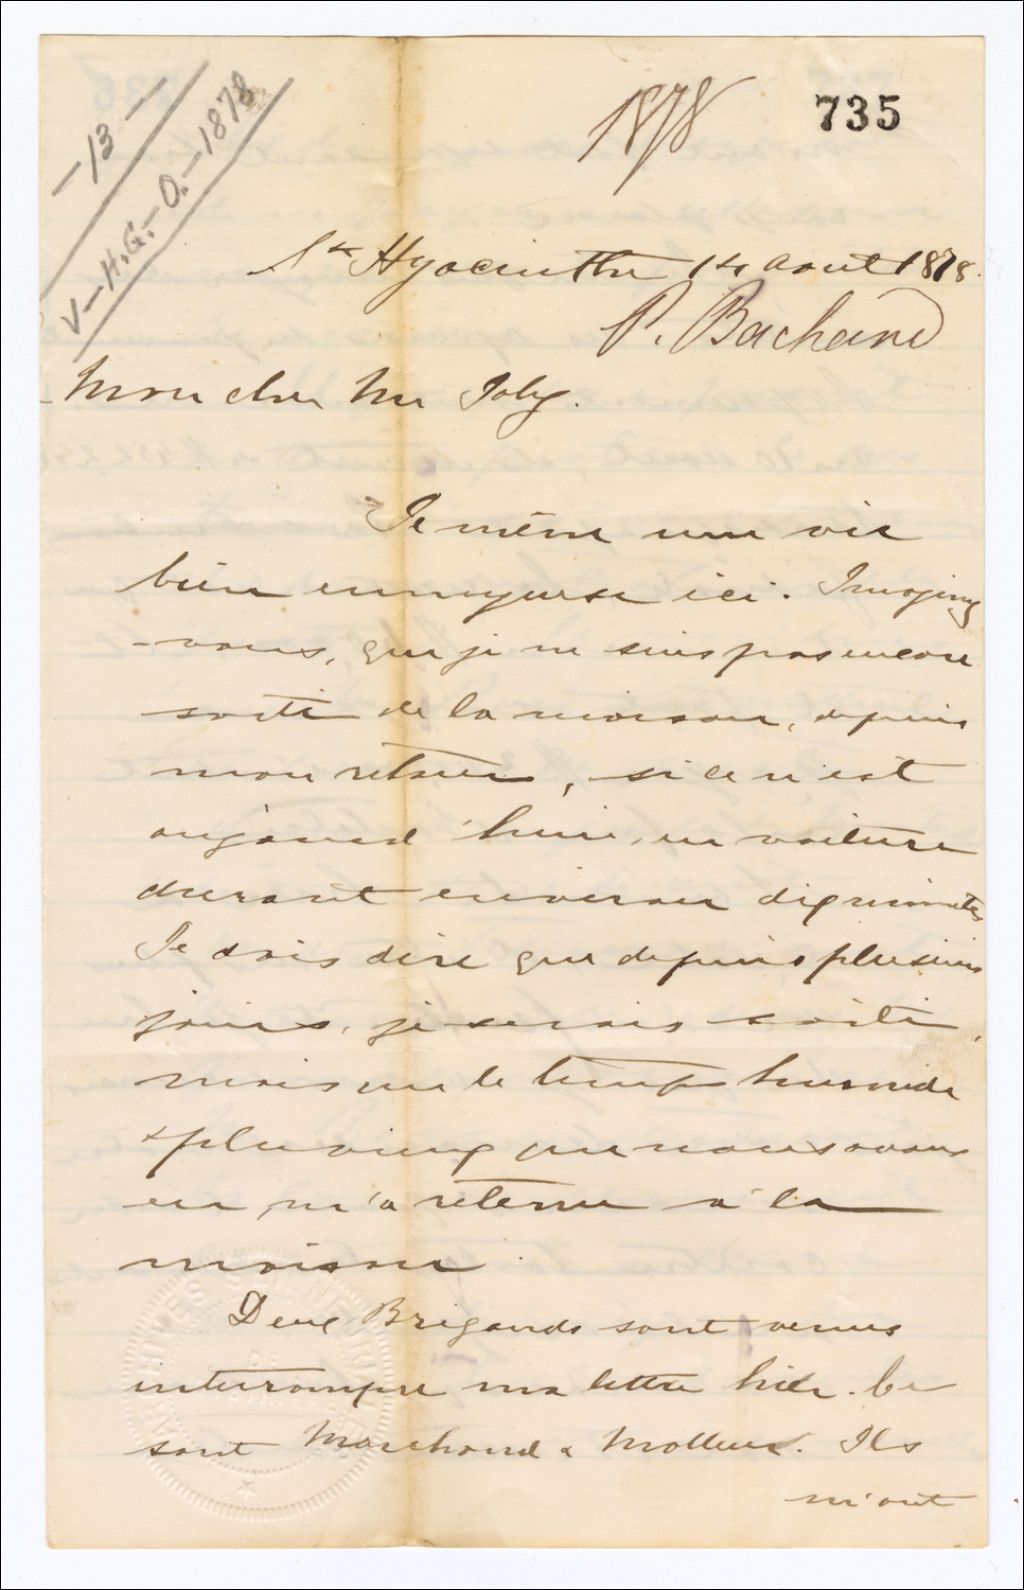 - 13 -
V-H.G.-O.-1878
1878
735
St Hyacinthe 14 aout 1878.
P. Bachand
Mon cher Mr Joly.
Je mène une vie
bien ennuyeuse ici. Imaginez
-vous, que je ne suis pas encore
sorti de la maison, depuis
mon retour, si ce n'est
aujourd'hui, en voiture
durant environ dix minutes
Je dois dire que depuis plusieurs
jours, je serais sorti,
mais le temps humide
& pluvieux que nous avons
eu, m'a retenu à la
maison.
Deux Brigands sont venus
interrompre ma lettre hier. Ce
sont Marchand & Molleur. Ils
m'ont